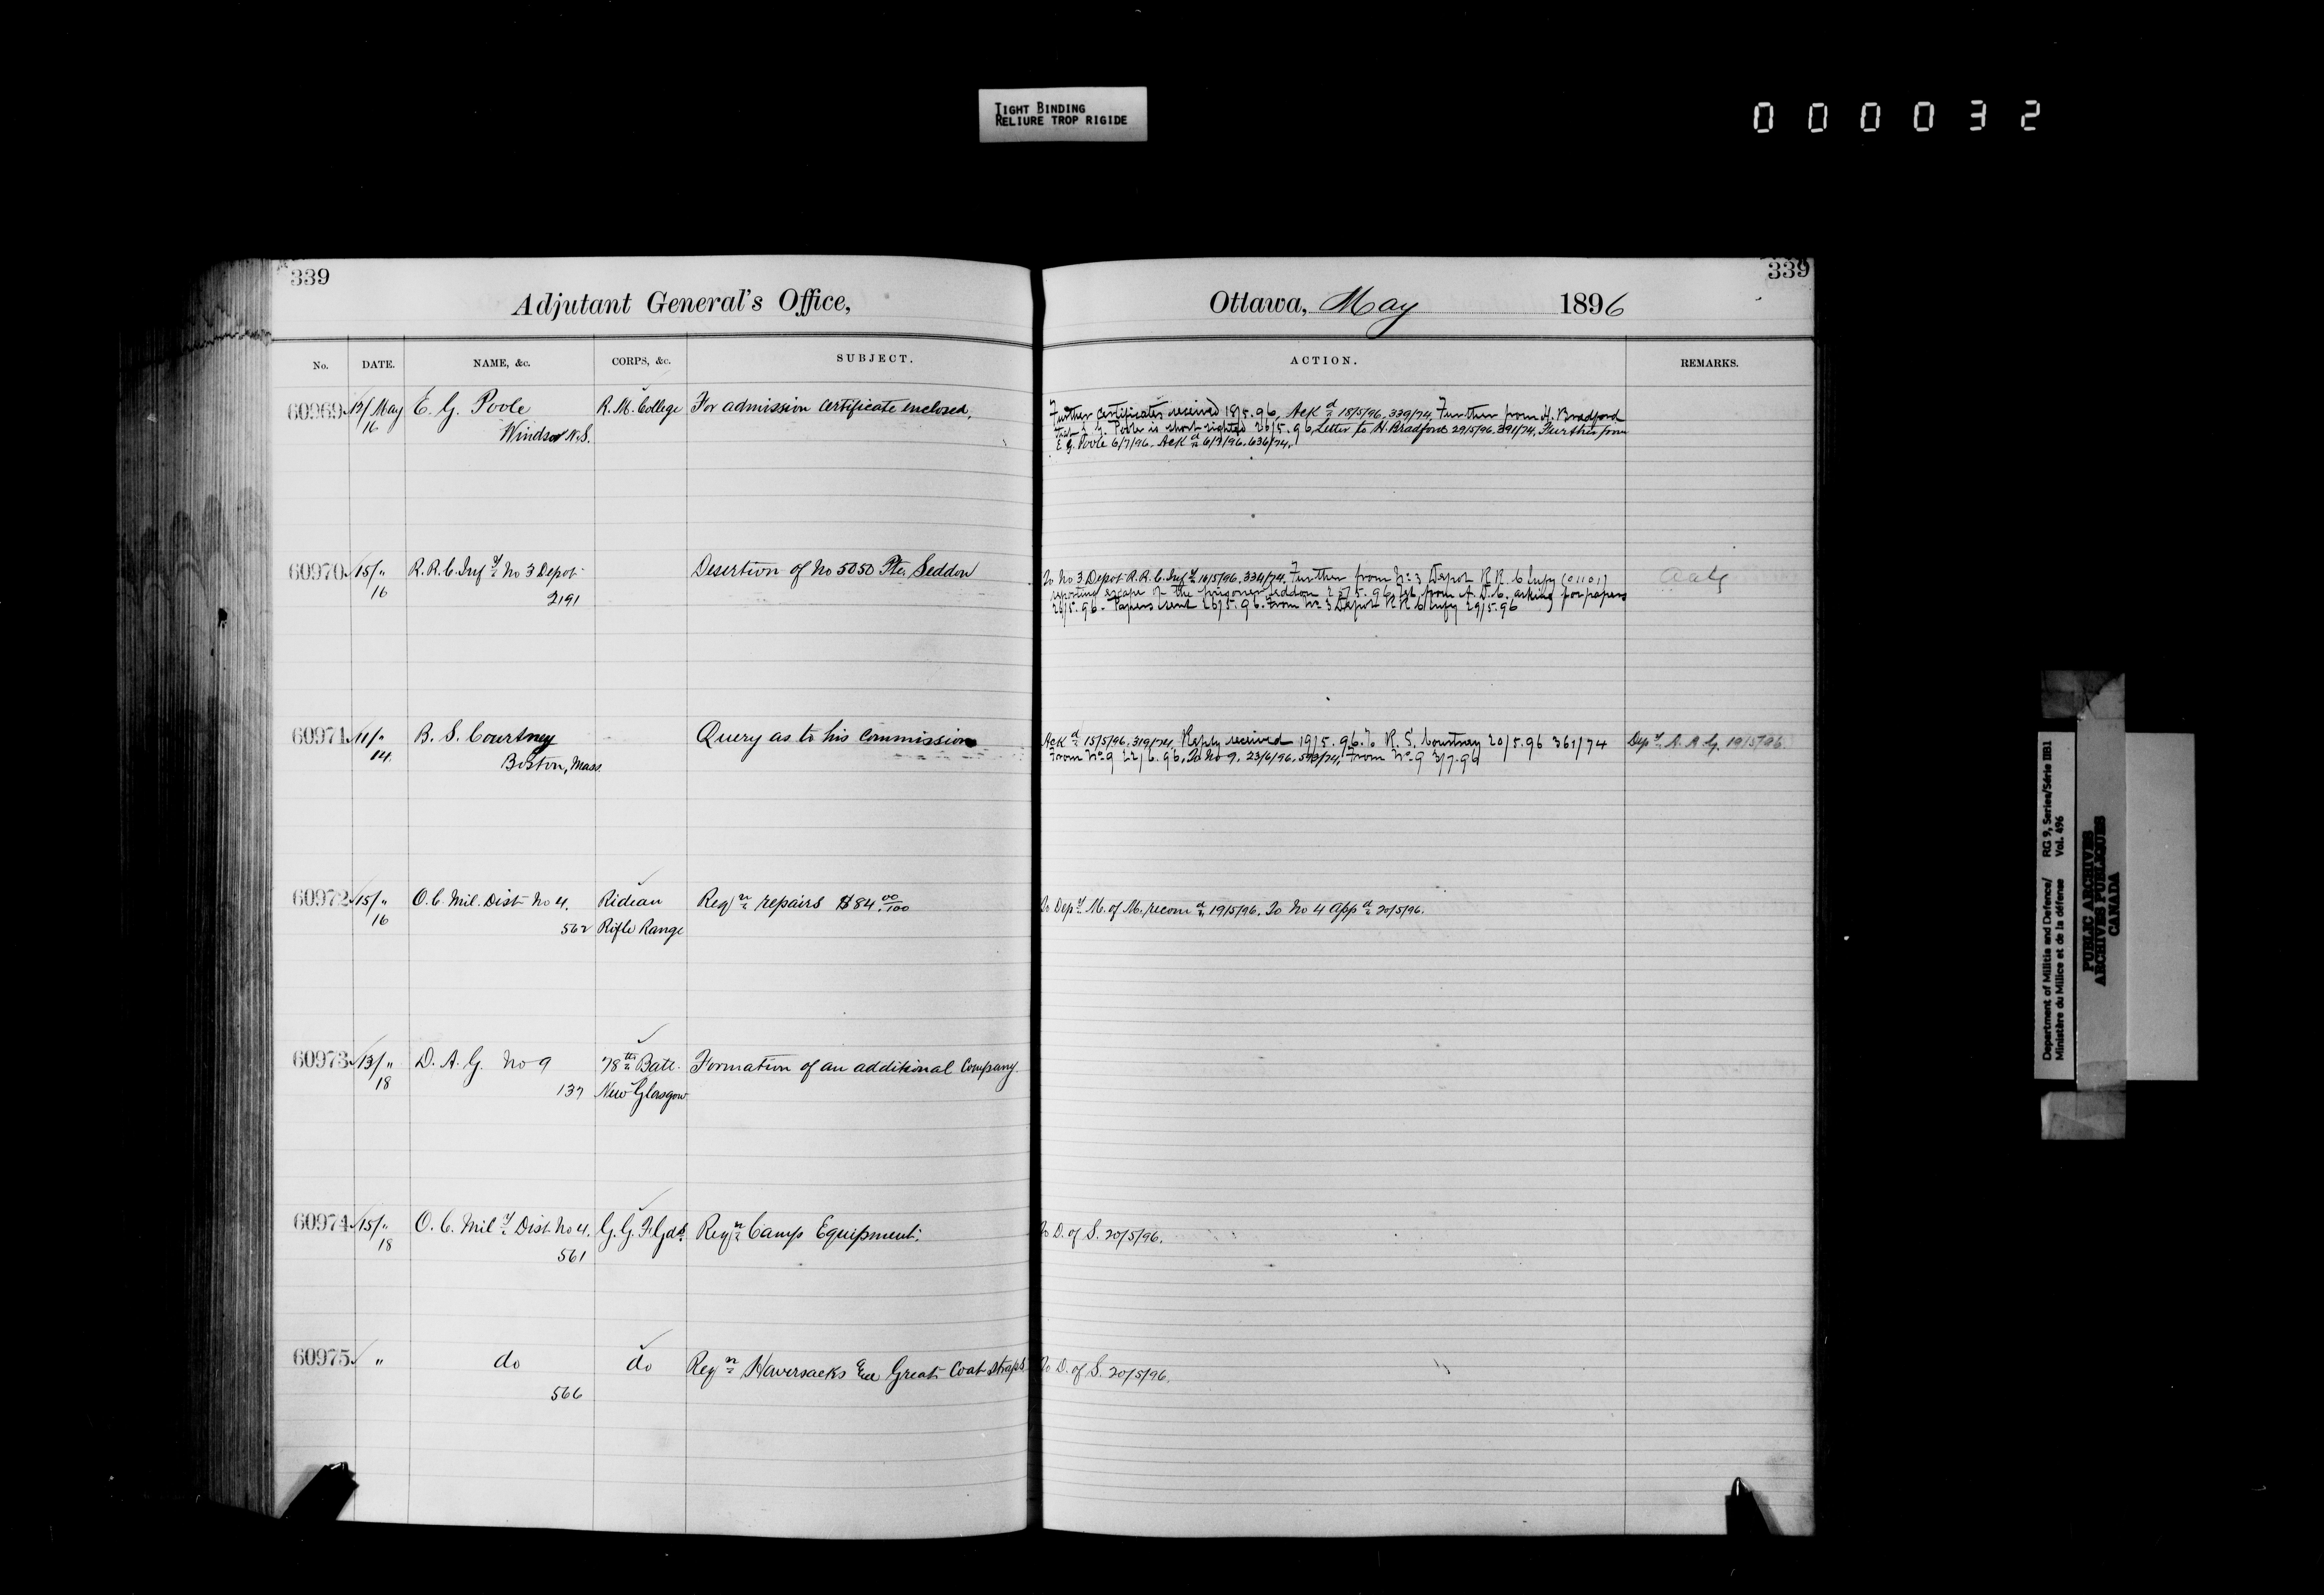 TIGHT BINDING
RELIURE TROP RIGIDE
000032
339
Adjutant General's Office,
No. DATE. NAME, &c. CORPS, &c. SUBJECT.
60969 12/May E. G. Poole R. M. College For admission certificate enclosed.
16 Windsor N.S.
60970 15/" R. R. C. Infy No 3 Depot Desertion of No 5050 Pte. Seddon
16 2191
60971 11/" R. S. Courtney Query as to his Commission
14. Boston, Mass.
60972 15/" O. C. Mil. Dist No 4. Ridean Reqn repairs $84.00/100
16 562 Rifle Range
60973 13/" D. A. G. No 9 78th Batt. Formation of an additional Company.
18 137 New Glasgow
60974 15/" O. C. Mily Dist No 4. G. G. F. Gds Reqn Camp Equipment.
18 561
60975 " do do Reqn Haversacks Great Coat straps
566
339
Ottawa, May 1896
ACTION. REMARKS.
Further certificates received 18/5.96. Ackd 15/5/96. 339/74. Further from H. Bradford
that E. G. Poole is short sighted 26/5.96. Letter to H. Bradford 29/5/96. 391/74. Further from
E. G. Poole 6/7/96. Ackd 6/7/96. 636/74.
To No 3 Depot R. R. C. Infy 16/5/96. 334/74. Further from No 3 Depot R R. C Infy (01101)
reporting escape of the prisoner Seddon 25/5.96. Tel. from A. D. C. asking for papers
26/5.96. Papers sent 26/5.96. From No 3 Depot R R C Infy 29/5.96
Ackd 15/5/96. 319/74. Reply received 19/5.96. To R. S. Courtney 20/5.96 361/74 Depy A. A. G. 19/5/96
From No 9 22/6.96. To No 9. 23/6/96. From No 9 3/7.96
To Depy M. of M. recomd 19/5/96. To No 4 appd 20/5/96.
To D. of S. 20/5/96.
To D. of S. 20/5/96.
Department of Militia and Defence/ RG 9, Series/Série IIB1
Ministère du Milice et de la défense Vol. 496
PUBLIC ARCHIVES
ARCHIVES PUBLIQUES
CANADA